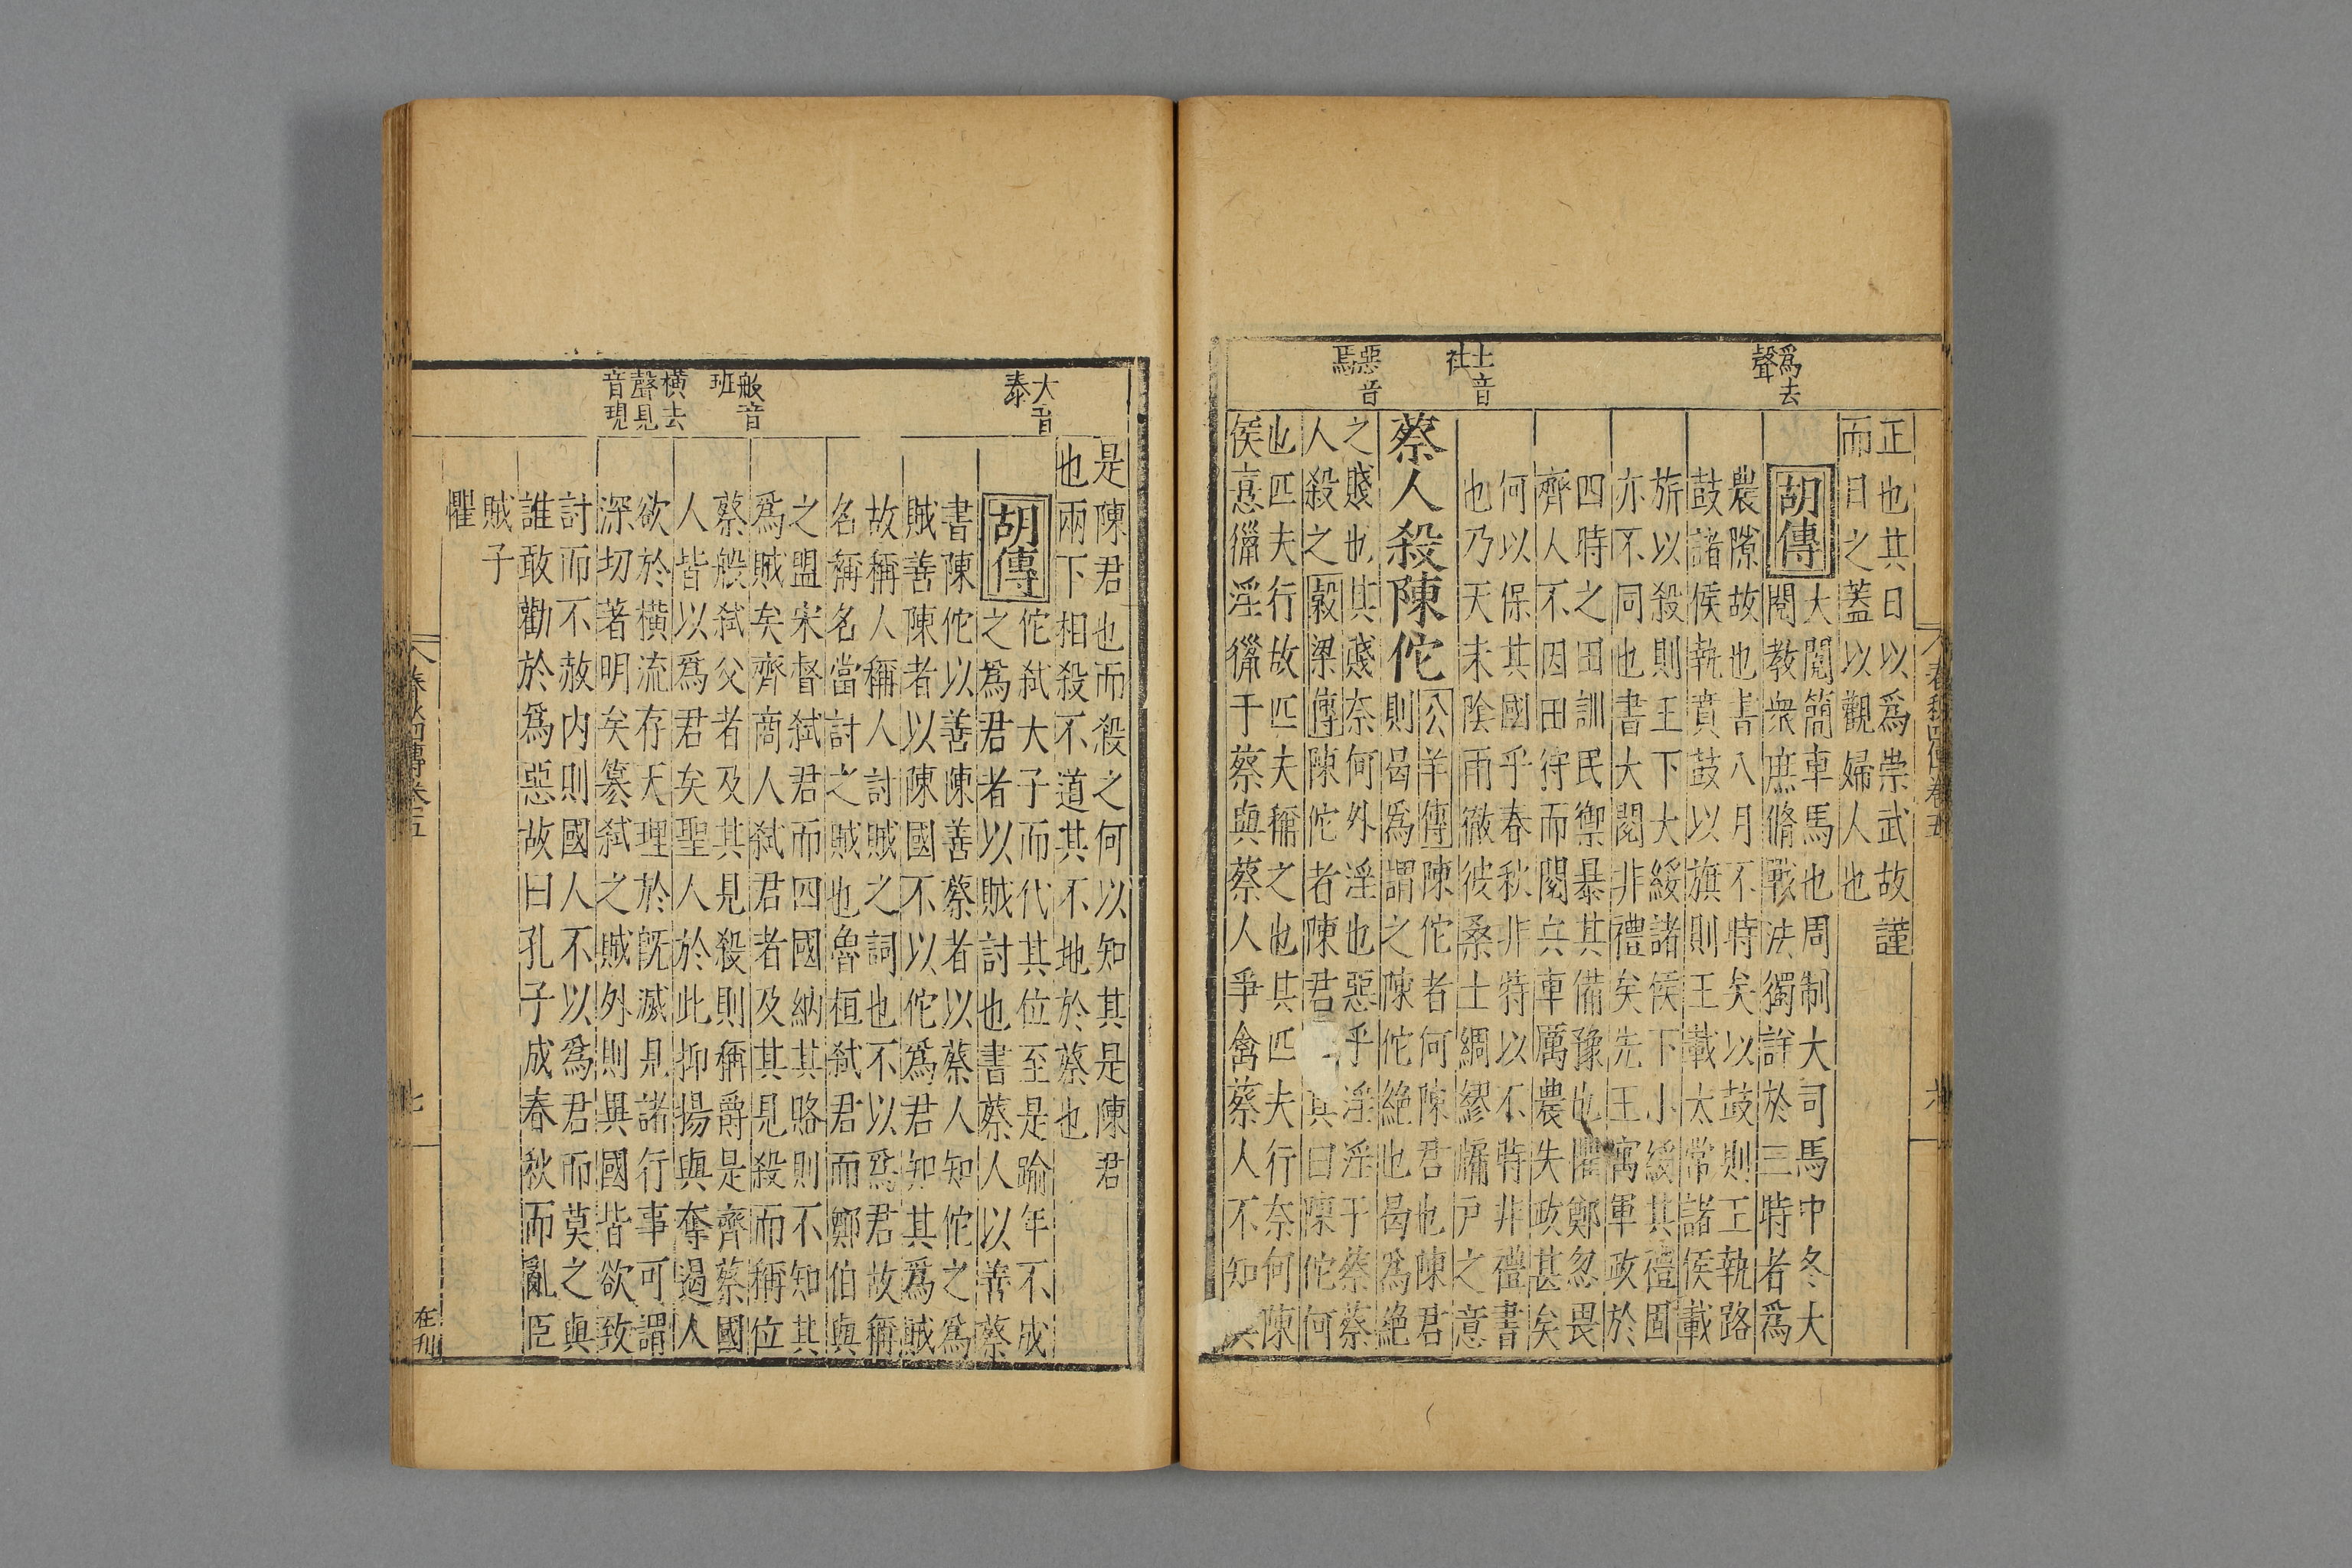 爲去
聲
上音
社
惡音
焉
正也其日以爲崇武故謹
而日之蓋以觀婦人也
胡傳
大閱簡車馬也周制大司馬中冬大
閱教衆庶脩戰法獨詳於三時者爲
農隙故也書八月不時矣以鼓則王執路
鼓諸侯執賁鼓以旗則王載太常諸侯載
旂以殺則王下大綏諸侯下小綏其禮固
亦不同也書大閱非禮矣先王寓軍政於
四時之田訓民禦暴其備豫也懼鄭忽畏
齊人不因田狩而閱兵車厲農失政甚矣
何以保其國乎春秋非特以不時非禮書
也乃天未陰雨徹彼桑土綢繆牖戶之意
蔡人殺陳佗
公羊傳陳佗者何陳君也陳君
則曷爲謂之陳佗絕也曷爲絕
之賤也其賤奈何外淫也惡乎淫淫于蔡蔡
人殺之穀梁傳陳佗者陳君其曰陳佗何
也匹夫行故匹夫稱之也其匹夫行奈何陳
侯憙獵淫獵于蔡與蔡人爭禽蔡人不知其
春秋四傳卷五
六
大音
泰
般音
班
橫去
聲見
音現
是陳君也而殺之何以知其是陳君
也兩下相殺不道其不地於蔡也
胡傳
佗弑大子而代其位至是踰年不成
之爲君者以賊討也書蔡人以善蔡
書陳佗以善陳善蔡者以蔡人知佗之爲
賊善陳者以陳國不以佗爲君知其爲賊
故稱人稱人討賊之詞也不以爲君故稱
名稱名當討之賊也魯桓弑君而鄭伯與
之盟宋督弑君而四國納其賂則不知其
爲賊矣齊商人弑君者及其見殺而稱位
蔡般弑父者及其見殺則稱爵是齊蔡國
人皆以爲君矣聖人於此抑揚與奪遏人
欲於橫流存天理於旣滅見諸行事可謂
深切著明矣篡弑之賊外則異國皆欲致
討而不赦內則國人不以爲君而莫之與
誰敢勸於爲惡故曰孔子成春秋而亂臣
賊子
懼
春秋四傳卷五
七
在刊